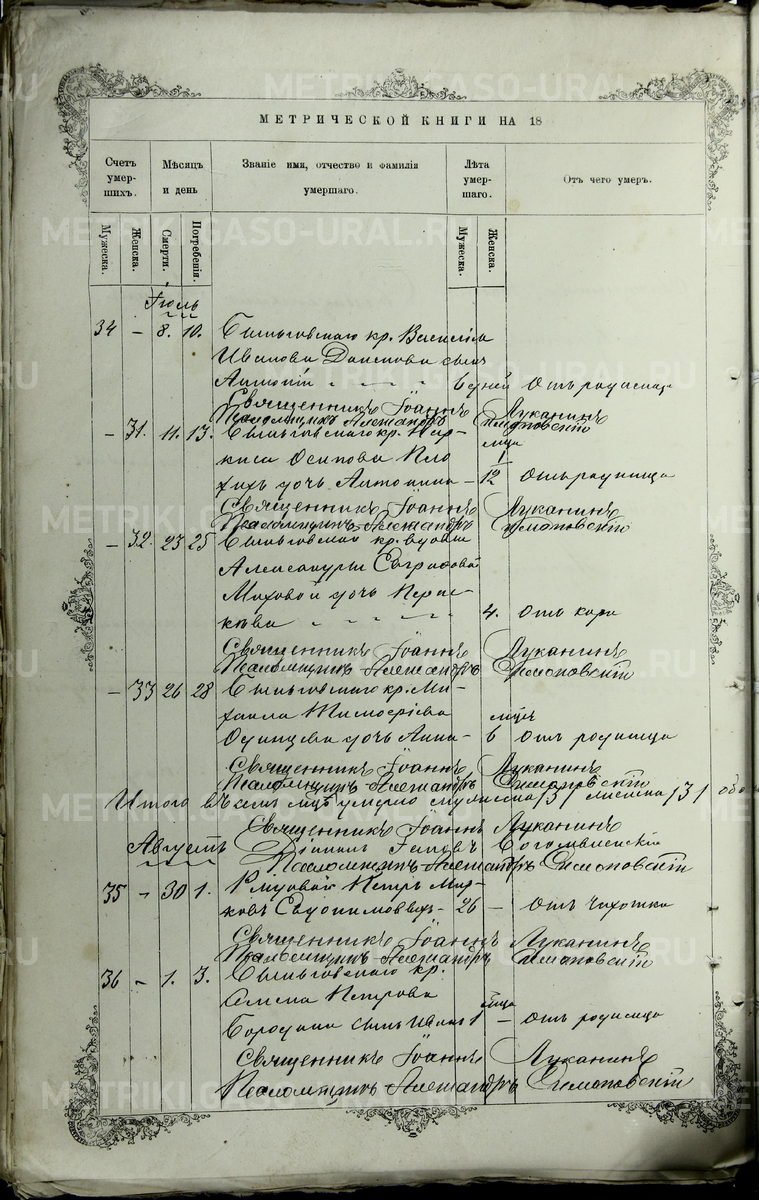 МЕТРИЧЕСКОЙ КНИГИ НА 18
Счетъ умер-шихъ.
Мѣсяцъ и день
Званіе имя, отчество и фамилія умершаго.
Лѣта умер-шаго.
Отъ чего умеръ.
Мужеска.
Женска.
Смерти.
Погребенія.
Мужеска.
Женска.
Іюль
34 – 8. 10. кр. Василія
Иванова сынъ
Антоній 6 дней Отъ родимца
Священникъ Іоаннъ Луканинъ
Псаломщикъ Александръ Симановскій
– 31. 11. 13. кр. Нар-
киса Осипова Пло
хихъ дочь Антонина – мца 1/12 Отъ родимца
Священникъ Іоаннъ Луканинъ
Псаломщикъ Александръ Симановскій
– 32. 23 25 кр. вдовы
Александры Евграфовой
Маховой дочь Парас-
кева 4. Отъ кори
Священникъ Іоаннъ Луканинъ
Псаломщикъ Александръ Симановскій
– 33 26 28 кр. Ми-
хаила Тимофѣева
Одинцева дочь Анна – мцъ 6 Отъ родимца
Священникъ Іоаннъ Луканинъ
Псаломщикъ Александръ Симановскій
Итого въ семъ мцѣ умерло мужска женска обо
Священникъ Іоаннъ Луканинъ
Августъ
Діаконъ
Псаломщикъ Александръ Симановскій
35 – 30 1. Рядовой Петръ Мар-
ковъ 26 – Отъ чахотки
Священникъ Іоаннъ Луканинъ
Псаломщикъ Александръ Симановскій
36 – 1. 3. кр.
Петрова
Бородина сынъ Иванъ 1 мца – Отъ родимца
Священникъ Іоаннъ Луканинъ
Псаломщикъ Александръ Симановскій
METRIKI.GASO-URAL.RU